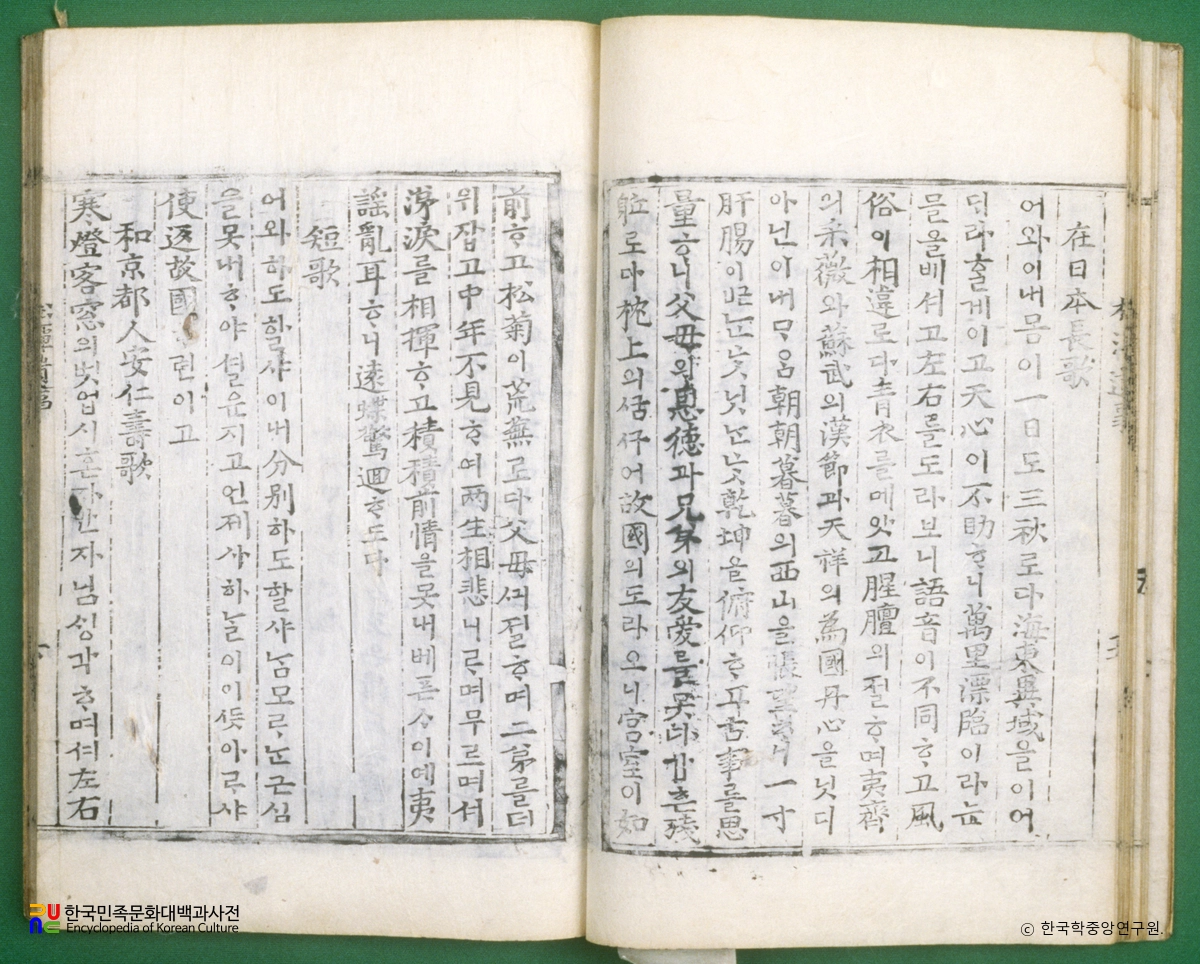 在日本長歌
어와이내몸이一日도三秋로다海東異域을이어
딘라훌게이고天心이不助ᄒᆞ니萬里漂臨이라ᄂᆞᆫ
믈을베셔고左右를도라보니語音이不同ᄒᆞ고風
俗이相違로다靑衣를메앗고腥膻의졀ᄒᆞ며夷齊
의采薇와蘇武의漢節과天祥의爲國丹心을닛디
아닌이내ᄆᆞᄋᆞᆷ朝朝暮暮의西山을悵望ᄒᆞ니一寸
肝腸이ᄭᅳᆫᄂᆞᆫᄃᆞᆺ닛ᄂᆞᆫᄃᆞᆺ乾坤을俯仰ᄒᆞ고古事를思
量ᄒᆞ니父母의恩德과兄弟의友愛를못다갑흔殘
로다枕上의ᄭᅮᆷᄭᅱ어故國의도라오니宮室이如
前ᄒᆞ고松菊이荒蕪로다父母ᄭᅴ졀ᄒᆞ며二弟를더
위잡고中年不見ᄒᆞ여兩生相悲니ᄅᆞ며무르며서
涕淚를相揮ᄒᆞ고積積前情을못내베픈ᄉᆞ이예夷
謠亂耳ᄒᆞ니遠蝶驚迴ᄒᆞ도다
短歌
어와하도할샤이내分別하도할샤ᄂᆞᆷ모ᄅᆞᄂᆞᆫ근심
을못내ᄒᆞ야셜운지고언제사하ᄂᆞᆯ이이ᄠᅳᆺ아ᄅᆞ샤
使返故國 련이고
和京都人安仁壽歌
寒燈客窓의벗업시혼자안자님ᄉᆡᆼ각ᄒᆞ며셔左右
한국민족문화대백과사전
Encyclopedia of Korean Culture
ⓒ 한국학중앙연구원.